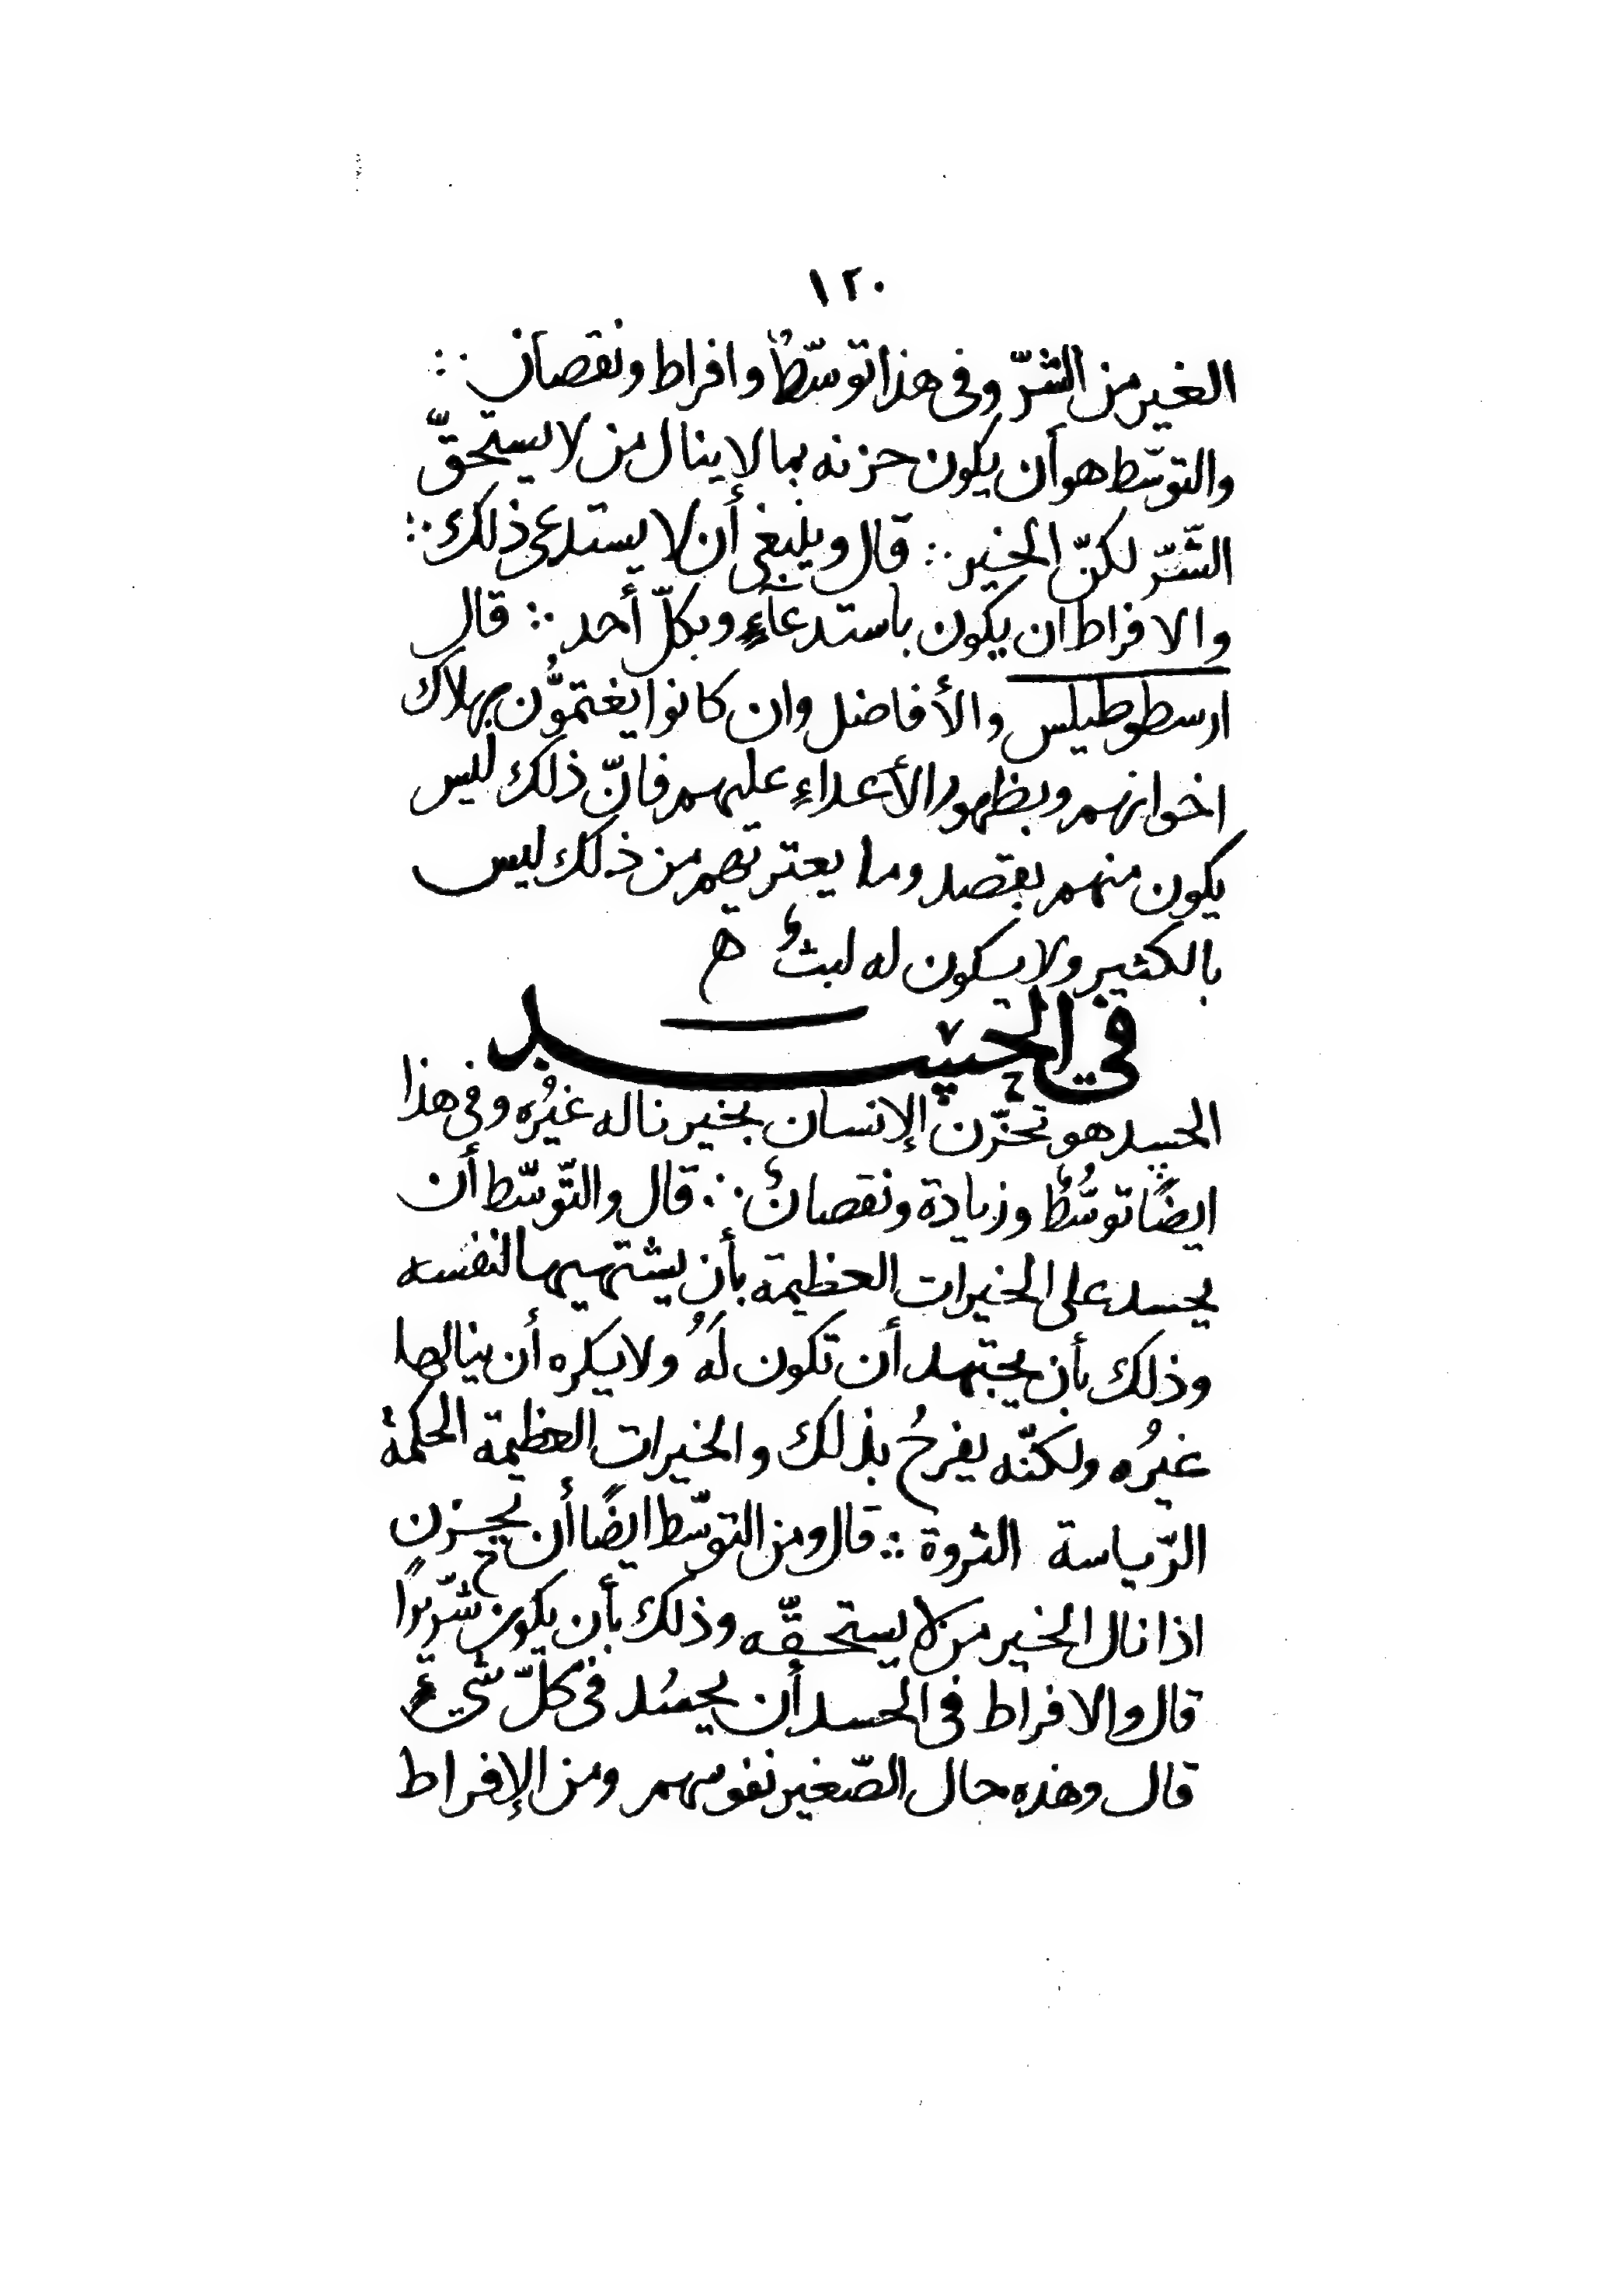 ١٢٠
الغير من الشرّ وفى هذا توسّطٌ وافراط ونقصان ∴
والتوسّط هو أن يكون حزنه بما لا ينال من لا يستحقّ
الشّرّ لكنّ الخير ∴ قال وينبغى أن لا يستدعى ذلك ∴
والافراط ان يكون باستدعآءٍ وبكلّ أحد ∴ قال
ارسطوطيلس والأفاضل وان كانوا يغتمّون بهلاك
اخوانهم وبظهور الأعداءِ عليهم فانّ ذلك ليس
يكون منهم بقصد وما يعتريهم من ذلك ليس
بالكثير ولا يكون له لبثٌ
في الحسد
الحسد هو تحزّن الإنسان بخير ناله غيرُه وفى هذا
ايضًا توسُّطٌ وزيادة ونقصانٌ ∴ قال والتّوسّط أن
يحسد على الخيرات العظيمة بأن يشتهيها لنفسه
وذلك بأن يجتهد أن تكون لَهُ ولا يكره أن ينالها
غيرُه ولكنّه يفرحُ بذلك والخيرات العظيمة الحكمة
الرّياسة الثروة ∴ قال ومن التوسّط ايضًا أن يحزن
اذا نال الخير من لا يستحقّه وذلك بأن يكون شرّيرًا
قال والافراط فى الحسد أن يحسُد فى كلّ شىءٍ
قال وهذه حال الصّغير نفوسهم ومن الإفراط